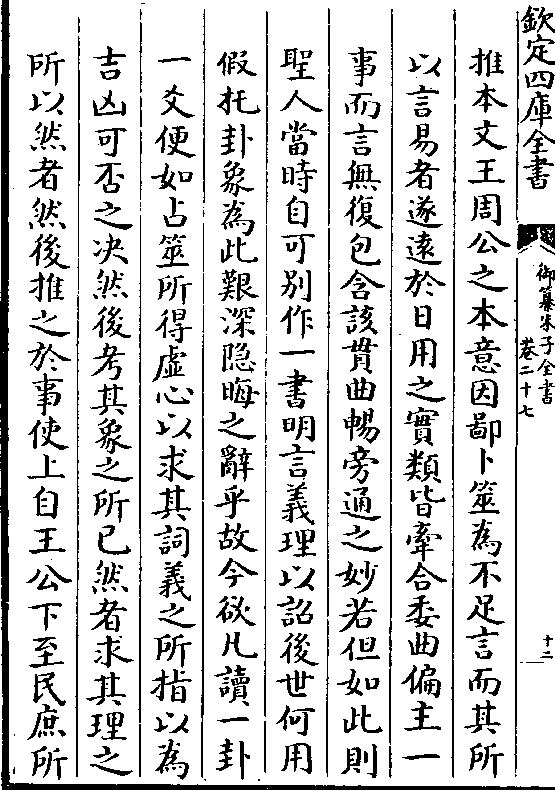 欽定四庫全書
御纂朱子全書
卷二十七
十二
推本文王周公之本意因鄙卜筮為不足言而其所
以言易者遂遠於日用之實類皆牽合委曲偏主一
事而言無復包含該貫曲暢旁通之妙若但如此則
聖人當時自可別作一書明言義理以詔後世何用
假托卦象為此艱深隐晦之辭乎故今欲凡讀一卦
一爻便如占筮所得虛心以求其詞義之所指以為
吉凶可否之决然後考其象之所已然者求其理之
所以然者然後推之於事使上自王公下至民庶所